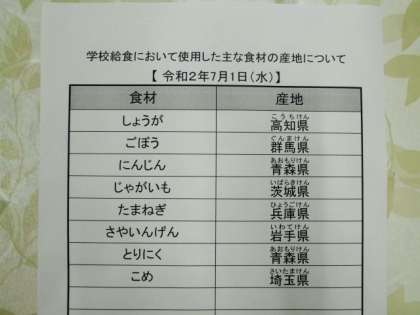 学校給食において使用した主な食材の産地について
【 令和2年7月1日(水)】
食材 産地
しょうが 高知県
こうちけん
ごぼう 群馬県
ぐんまけん
にんじん 青森県
あおもりけん
じゃがいも 茨城県
いばらきけん
たまねぎ 兵庫県
ひょうごけん
さやいんげん 岩手県
いわてけん
とりにく 青森県
あおもりけん
こめ 埼玉県
さいたまけん